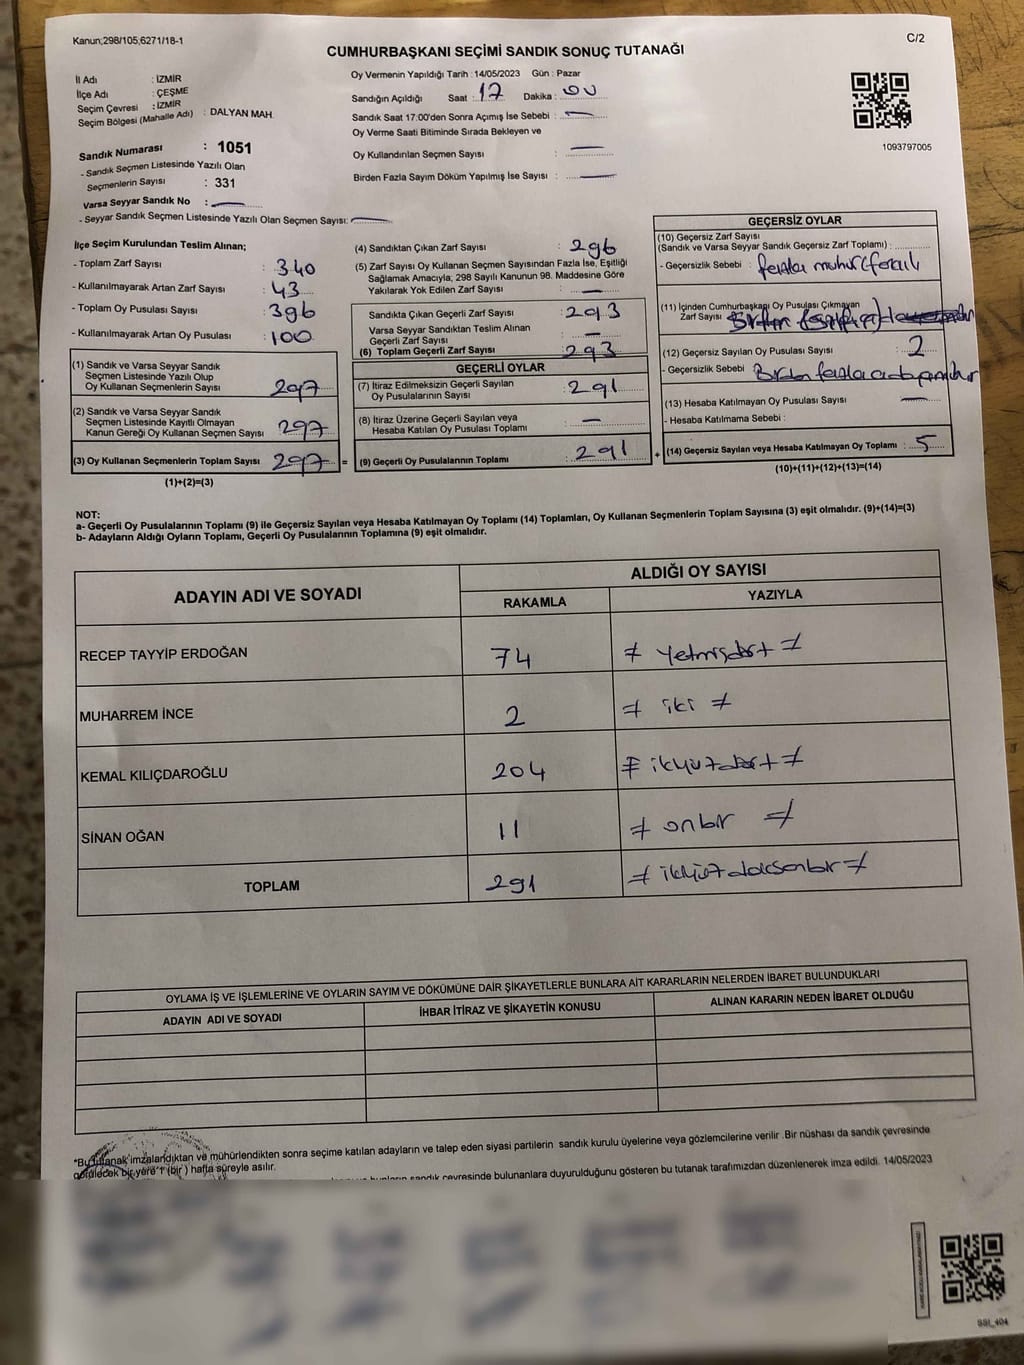 Kanun;298/105,6271/18-1
C/2
CUMHURBAŞKANI SEÇİMİ SANDIK SONUÇ TUTANAĞI
İl Adı : İZMİR
İlçe Adı : ÇEŞME
Seçim Çevresi : İZMİR
Seçim Bölgesi (Mahalle Adı) : DALYAN MAH.
Sandık Numarası : 1051
- Sandık Seçmen Listesinde Yazılı Olan
Seçmenlerin Sayısı : 331
Varsa Seyyar Sandık No :
- Seyyar Sandık Seçmen Listesinde Yazılı Olan Seçmen Sayısı:
Oy Vermenin Yapıldığı Tarih : 14/05/2023 Gün : Pazar
Sandığın Açıldığı Saat : 17 Dakika : 00
Sandık Saat 17:00'den Sonra Açımış İse Sebebi :
Oy Verme Saati Bitiminde Sırada Bekleyen ve
Oy Kullandırılan Seçmen Sayısı :
Birden Fazla Sayım Döküm Yapılmış İse Sayısı :
1093797005
İlçe Seçim Kurulundan Teslim Alınan;
- Toplam Zarf Sayısı : 340
- Kullanılmayarak Artan Zarf Sayısı : 43
- Toplam Oy Pusulası Sayısı : 396
- Kullanılmayarak Artan Oy Pusulası : 100
(1) Sandık ve Varsa Seyyar Sandık
Seçmen Listesinde Yazılı Olup
Oy Kullanan Seçmenlerin Sayısı : 297
(2) Sandık ve Varsa Seyyar Sandık
Seçmen Listesinde Kayıtlı Olmayan
Kanun Gereği Oy Kullanan Seçmen Sayısı : 297
(3) Oy Kullanan Seçmenlerin Toplam Sayısı : 297 =
(1)+(2)=(3)
(4) Sandıktan Çıkan Zarf Sayısı : 296
(5) Zarf Sayısı Oy Kullanan Seçmen Sayısından Fazla İse, Eşitliği
Sağlamak Amacıyla, 298 Sayılı Kanunun 98. Maddesine Göre
Yakılarak Yok Edilen Zarf Sayısı :
Sandıkta Çıkan Geçerli Zarf Sayısı : 293
Varsa Seyyar Sandıktan Teslim Alınan
Geçerli Zarf Sayısı :
(6) Toplam Geçerli Zarf Sayısı : 293
GEÇERLİ OYLAR
(7) İtiraz Edilmeksizin Geçerli Sayılan
Oy Pusulalarının Sayısı : 291
(8) İtiraz Üzerine Geçerli Sayılan veya
Hesaba Katılan Oy Pusulası Toplamı :
(9) Geçerli Oy Pusulalarının Toplamı : 291 +
GEÇERSİZ OYLAR
(10) Geçersiz Zarf Sayısı
(Sandık ve Varsa Seyyar Sandık Geçersiz Zarf Toplamı) :
- Geçersizlik Sebebi :
(11) İçinden Cumhurbaşkanı Oy Pusulası Çıkmayan
Zarf Sayısı
(12) Geçersiz Sayılan Oy Pusulası Sayısı : 2
- Geçersizlik Sebebi : Birden fazla
(13) Hesaba Katılmayan Oy Pusulası Sayısı :
- Hesaba Katılmama Sebebi :
(14) Geçersiz Sayılan veya Hesaba Katılmayan Oy Toplamı : 5
(10)+(11)+(12)+(13)=(14)
NOT:
a- Geçerli Oy Pusulalarının Toplamı (9) ile Geçersiz Sayılan veya Hesaba Katılmayan Oy Toplamı (14) Toplamları, Oy Kullanan Seçmenlerin Toplam Sayısına (3) eşit olmalıdır. (9)+(14)=(3)
b- Adayların Aldığı Oyların Toplamı, Geçerli Oy Pusulalarının Toplamına (9) eşit olmalıdır.
ADAYIN ADI VE SOYADI
ALDIĞI OY SAYISI
RAKAMLA YAZIYLA
RECEP TAYYİP ERDOĞAN 74 ≠ yetmişdört ≠
MUHARREM İNCE 2 ≠ iki ≠
KEMAL KILIÇDAROĞLU 204 ≠ ikiyüzdört ≠
SİNAN OĞAN 11 ≠ onbir ≠
TOPLAM 291 ≠ ikiyüzdoksanbir ≠
OYLAMA İŞ VE İŞLEMLERİNE VE OYLARIN SAYIM VE DÖKÜMÜNE DAİR ŞİKAYETLERLE BUNLARA AİT KARARLARIN NELERDEN İBARET BULUNDUKLARI
ADAYIN ADI VE SOYADI İHBAR İTİRAZ VE ŞİKAYETİN KONUSU ALINAN KARARIN NEDEN İBARET OLDUĞU
*Bu tutanak imzalandıktan ve mühürlendikten sonra seçime katılan adayların ve talep eden siyasi partilerin sandık kurulu üyelerine veya gözlemcilerine verilir .Bir nüshası da sandık çevresinde
görülecek bir yere 1 (bir) hafta süreyle asılır.
sandık çevresinde bulunanlara duyurulduğunu gösteren bu tutanak tarafımızdan düzenlenerek imza edildi. 14/05/2023
SSI_404